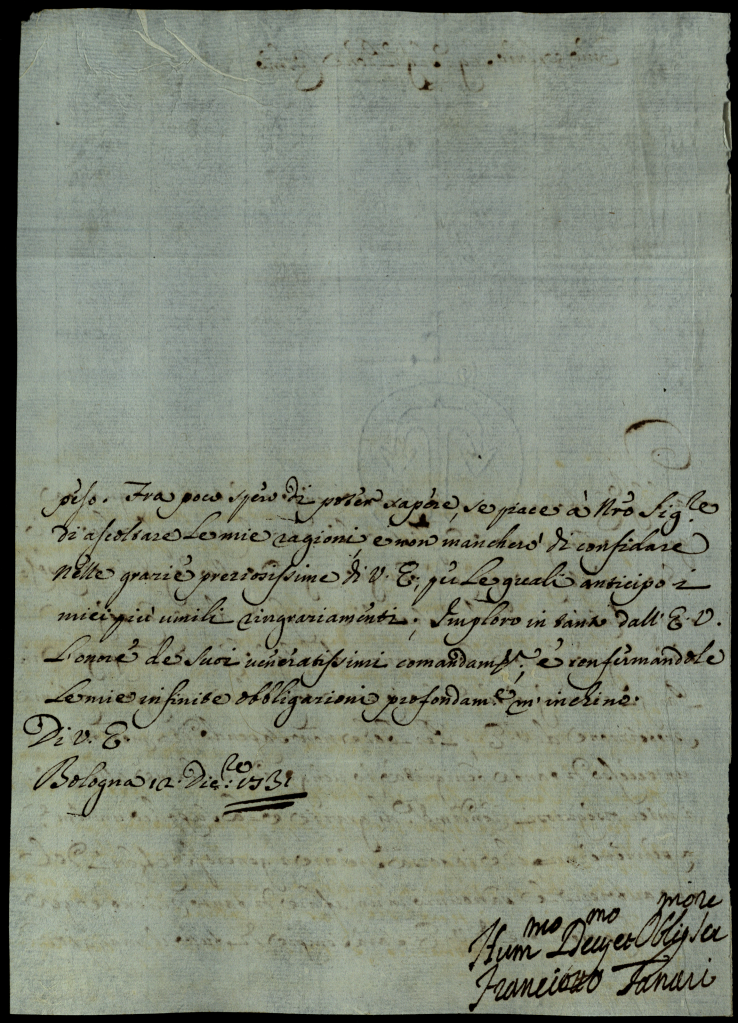 peso. Fra poco spero di poter sapere, se piace à Nrõ Sig.re
di ascoltare le mie ragioni, e non mancherò di confidare
nelle grazie preziosissime di V. E., per le quali anticipo i
miei più umili ringraziamenti; Imploro in tanto dall' E. V.
L'onore de suoi veneratissimi comandam.ti, e confirmandole
le mie infinite obbligazioni profondam.e m' inchino.
Di V. E.
Bologna 12. Dic.re 1731
Hum.mo Dev.mo et Obl.mo Ser.re
Francesco Tanari